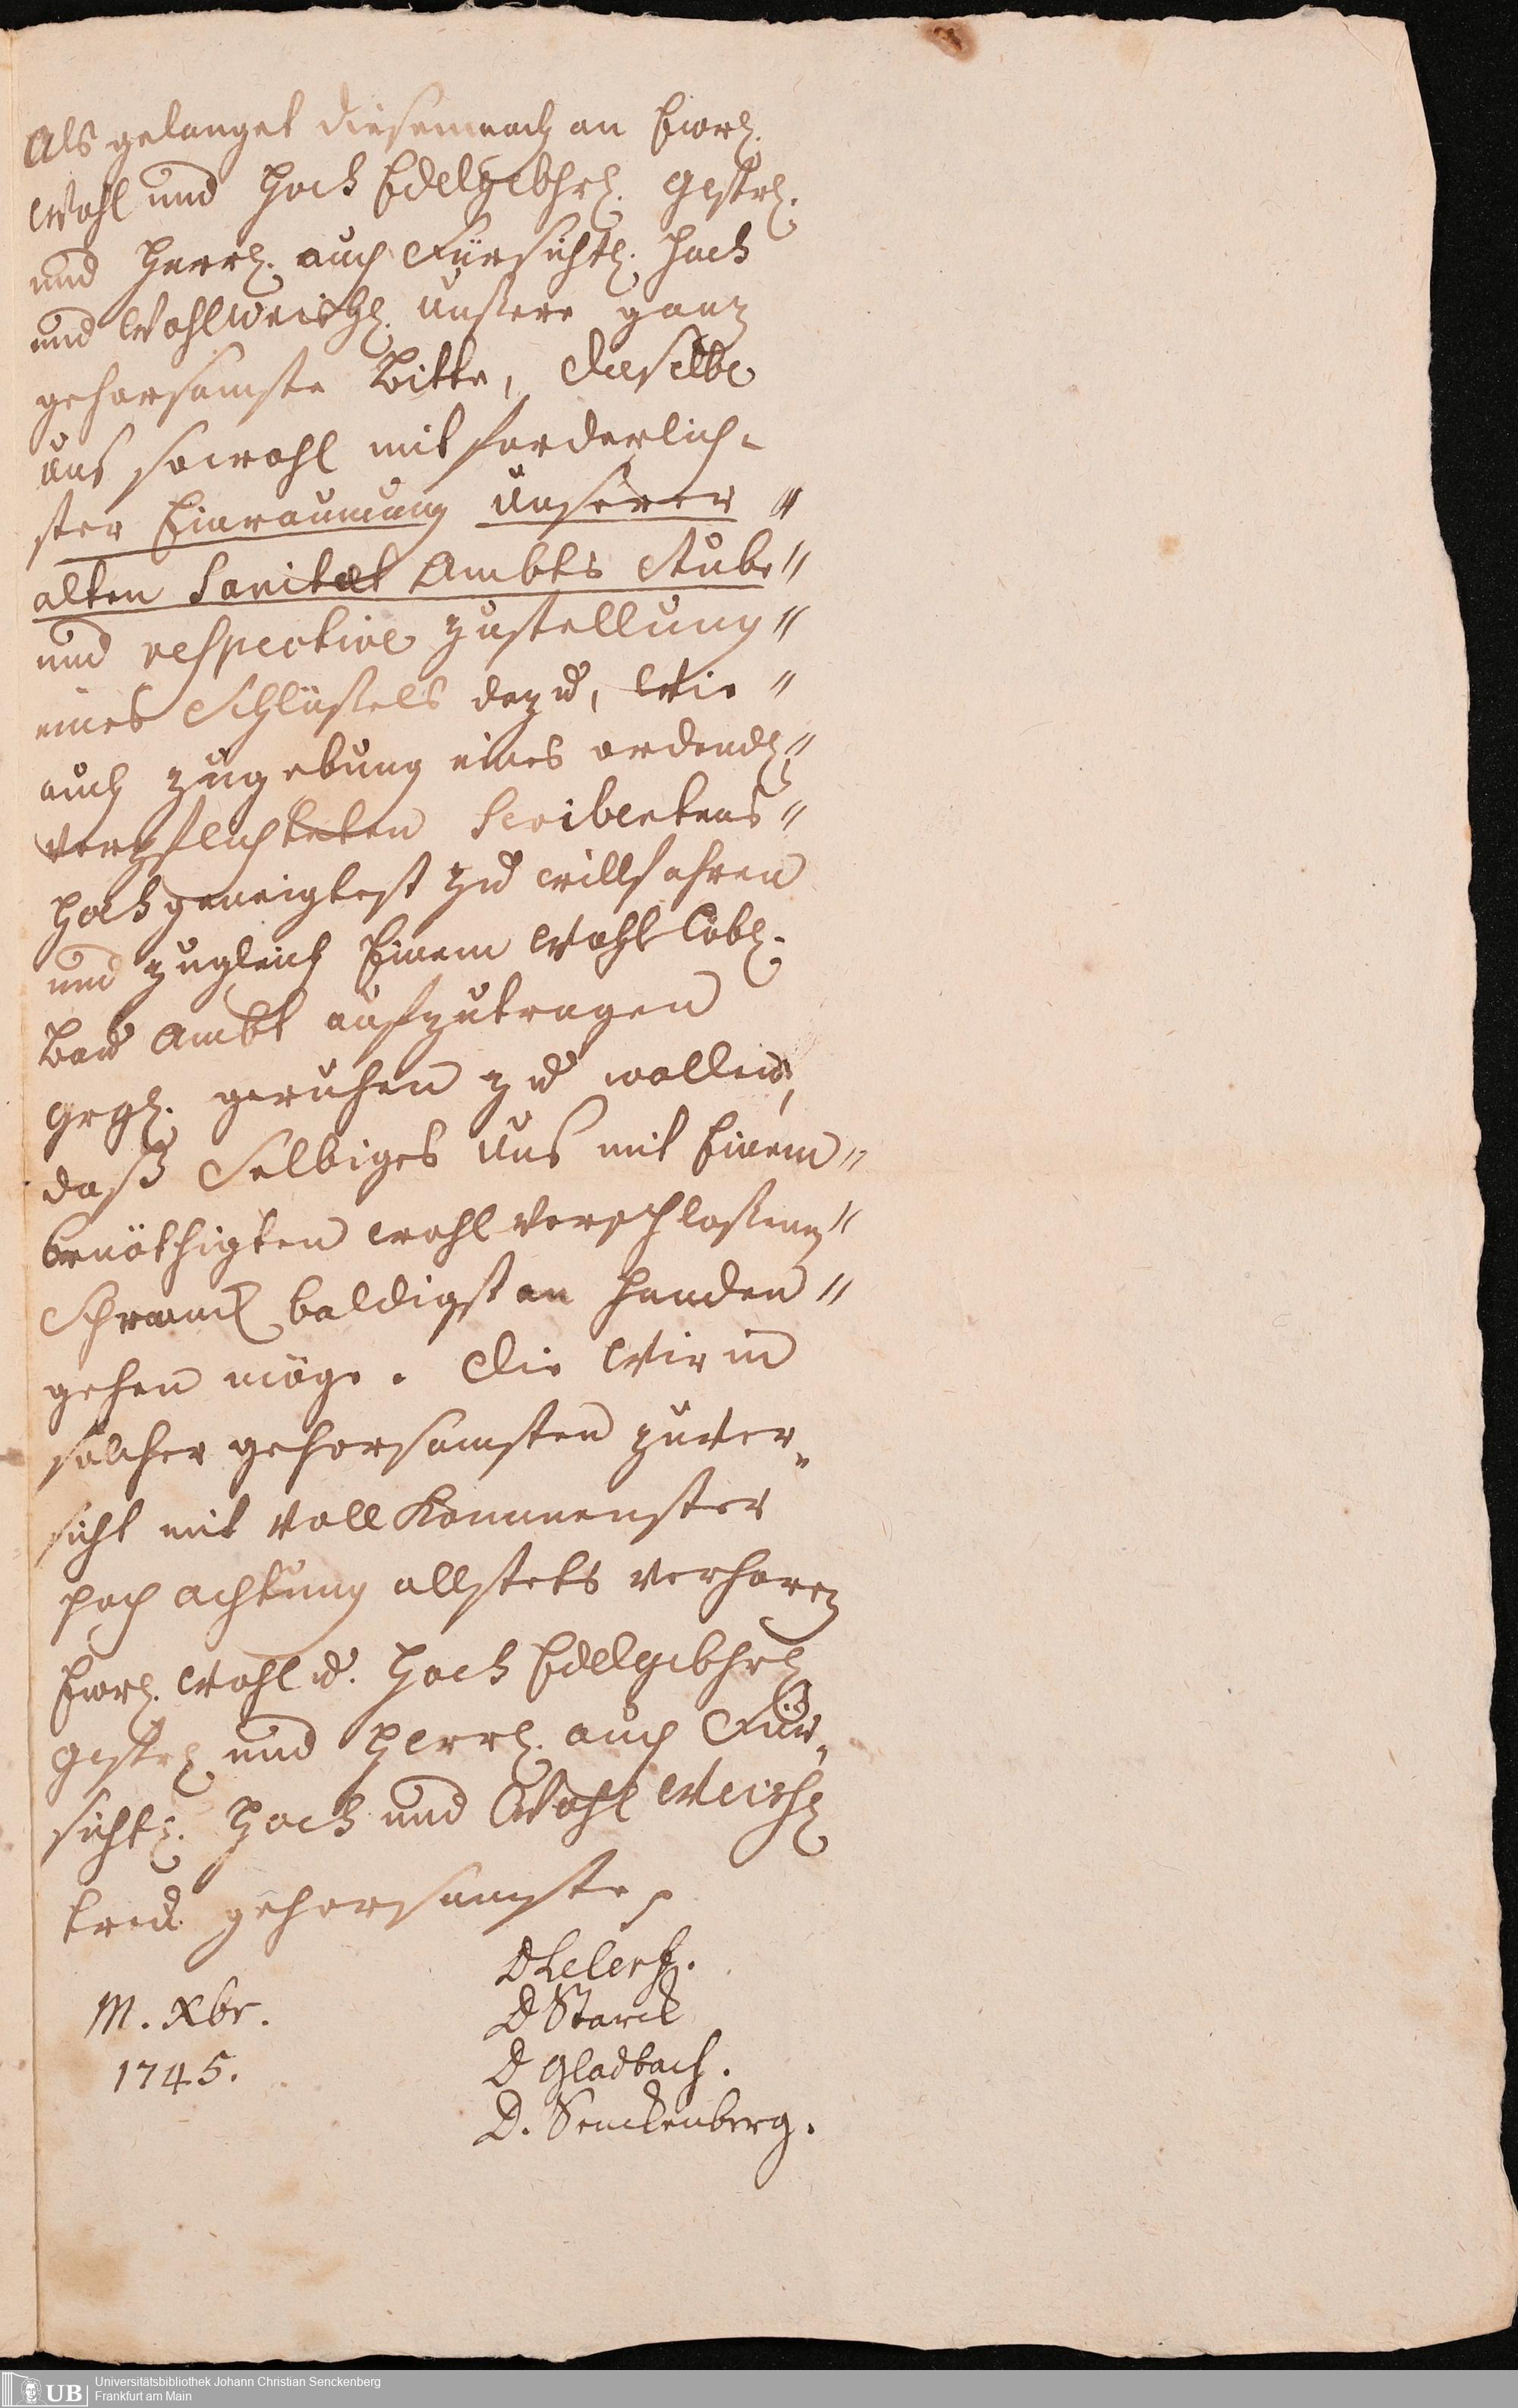 Als gelanget diesemnach an Ewrl.
Wohl und Hoch Edelgebhrl. Gestrl.
und Herrl. auch Fürsichtl. Hoch
und Wohlweishl. unsere ganz
gehorsamste Bitte, dieselbe
uns sowohl mit forderlich-
ster Einraumung unserer "
alten Sanitæt Ambts Stube "
und respective zustellung "
eines Schlüßels dazu, wie "
auch zugebung eines ordendl. "
verpflichteten Scribentens "
Hochgeneigtest zu willfahren
und zugleich Einem Wohl Löbl.
Bau Ambt aufzutragen
grgl. geruhen zu wollen,
daß Selbiges uns mit Einem "
benöthigten wohl verschloßenen "
Schranck baldigst an handen "
gehen möge. Die Wir in
solcher gehorsamsten zuver-
sicht mit Voll Kommenster
Hoch achtung allstets verharren
Ewrl. Wohl u. Hoch Edelgebhrl.
Gestrl. und Herrl. auch Für-
sichtl. Hoch und Wohl Weishl
treu gehorsamste
D Lelerß.
M. Xbr. D Starck
1745. D Gladbach.
D. Senckenberg.
UB Universitätsbibliothek Johann Christian Senckenberg
Frankfurt am Main